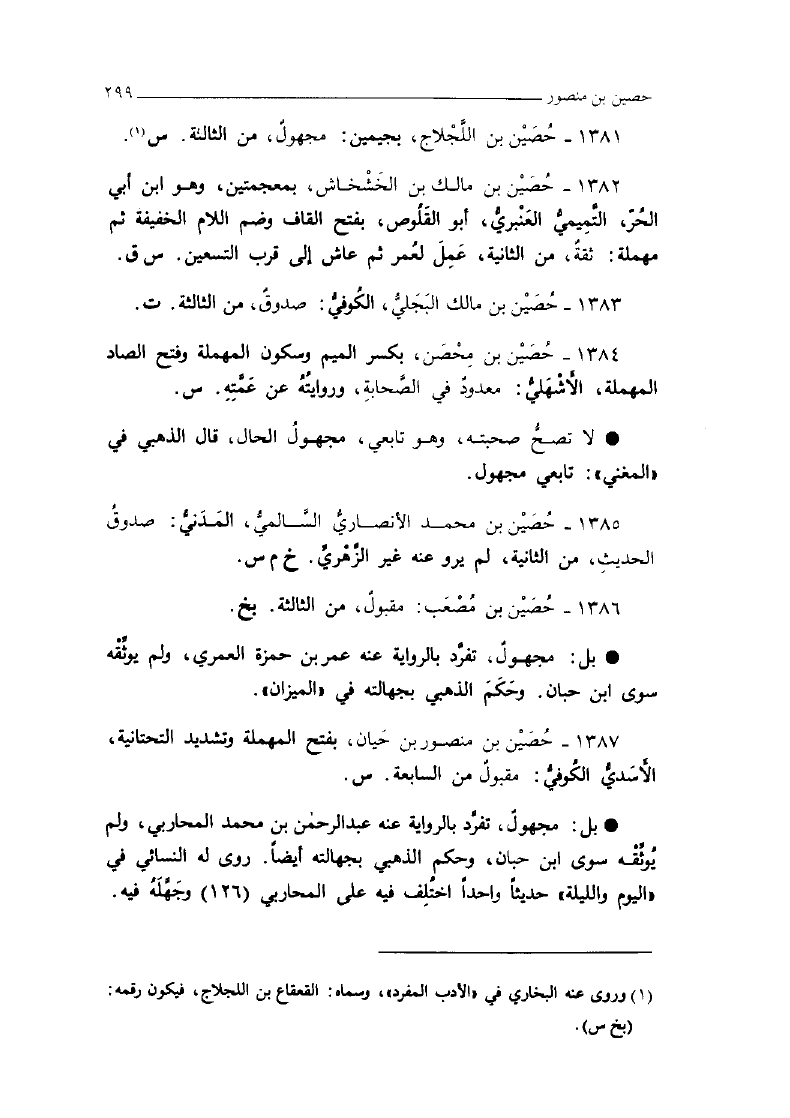 حصين بن منصور ــــــــــــــــــــــــــــــــــــــــ ٢٩٩
١٣٨١ ـ حُصَيْن بن اللَّجْلاج، بجيمين: مجهولٌ، من الثالثة. س(١).
١٣٨٢ ـ حُصَيْن بن مالك بن الخَشْخاش، بمعجمتين، وهو ابن أبي
الحُرّ، التَّمِيميُّ العَنْبريُّ، أبو القَلُوص، بفتح القاف وضم اللام الخفيفة ثم
مهملة: ثقةٌ، من الثانية، عَمِلَ لعُمر ثم عاش إلى قرب التسعين. س ق.
١٣٨٣ ـ حُصَيْن بن مالك البَجَليُّ، الكُوفيُّ: صدوقٌ، من الثالثة. ت.
١٣٨٤ ـ حُصَيْن بن مِحْصَن، بكسر الميم وسكون المهملة وفتح الصاد
المهملة، الأَشْهَليُّ: معدودٌ في الصَّحابةِ، وروايتُهُ عن عَمَّتِهِ. س.
● لا تصحُّ صحبته، وهو تابعي، مجهولُ الحال، قال الذهبي في
«المغني»: تابعي مجهول.
١٣٨٥ ـ حُصَيْن بن محمد الأنصاريُّ السَّالميُّ، المَدَنيُّ: صدوقُ
الحديثِ، من الثانية، لم يرو عنه غير الزُّهْريِّ. خ م س.
١٣٨٦ ـ حُصَيْن بن مُصْعَب: مقبولٌ، من الثالثة. بخ.
● بل: مجهولٌ، تفرَّد بالرواية عنه عمر بن حمزة العمري، ولم يوثِّقْه
سوى ابن حبان. وحَكَمَ الذهبي بجهالته في «الميزان».
١٣٨٧ ـ حُصَيْن بن منصور بن حَيان، بفتح المهملة وتشديد التحتانية،
الأَسَديُّ الكُوفيُّ: مقبولٌ من السابعة. س.
● بل: مجهولٌ، تفرَّد بالرواية عنه عبدالرحمٰن بن محمد المحاربي، ولم
يُوثِّقْه سوى ابن حبان، وحكم الذهبي بجهالته أيضاً. روى له النسائي في
«اليوم والليلة» حديثاً واحداً اختُلِف فيه على المحاربي (١٢٦) وجَهَّلَهُ فيه.
(١) وروى عنه البخاري في «الأدب المفرد»، وسماه: القعقاع بن اللجلاج، فيكون رقمه:
(بخ س).